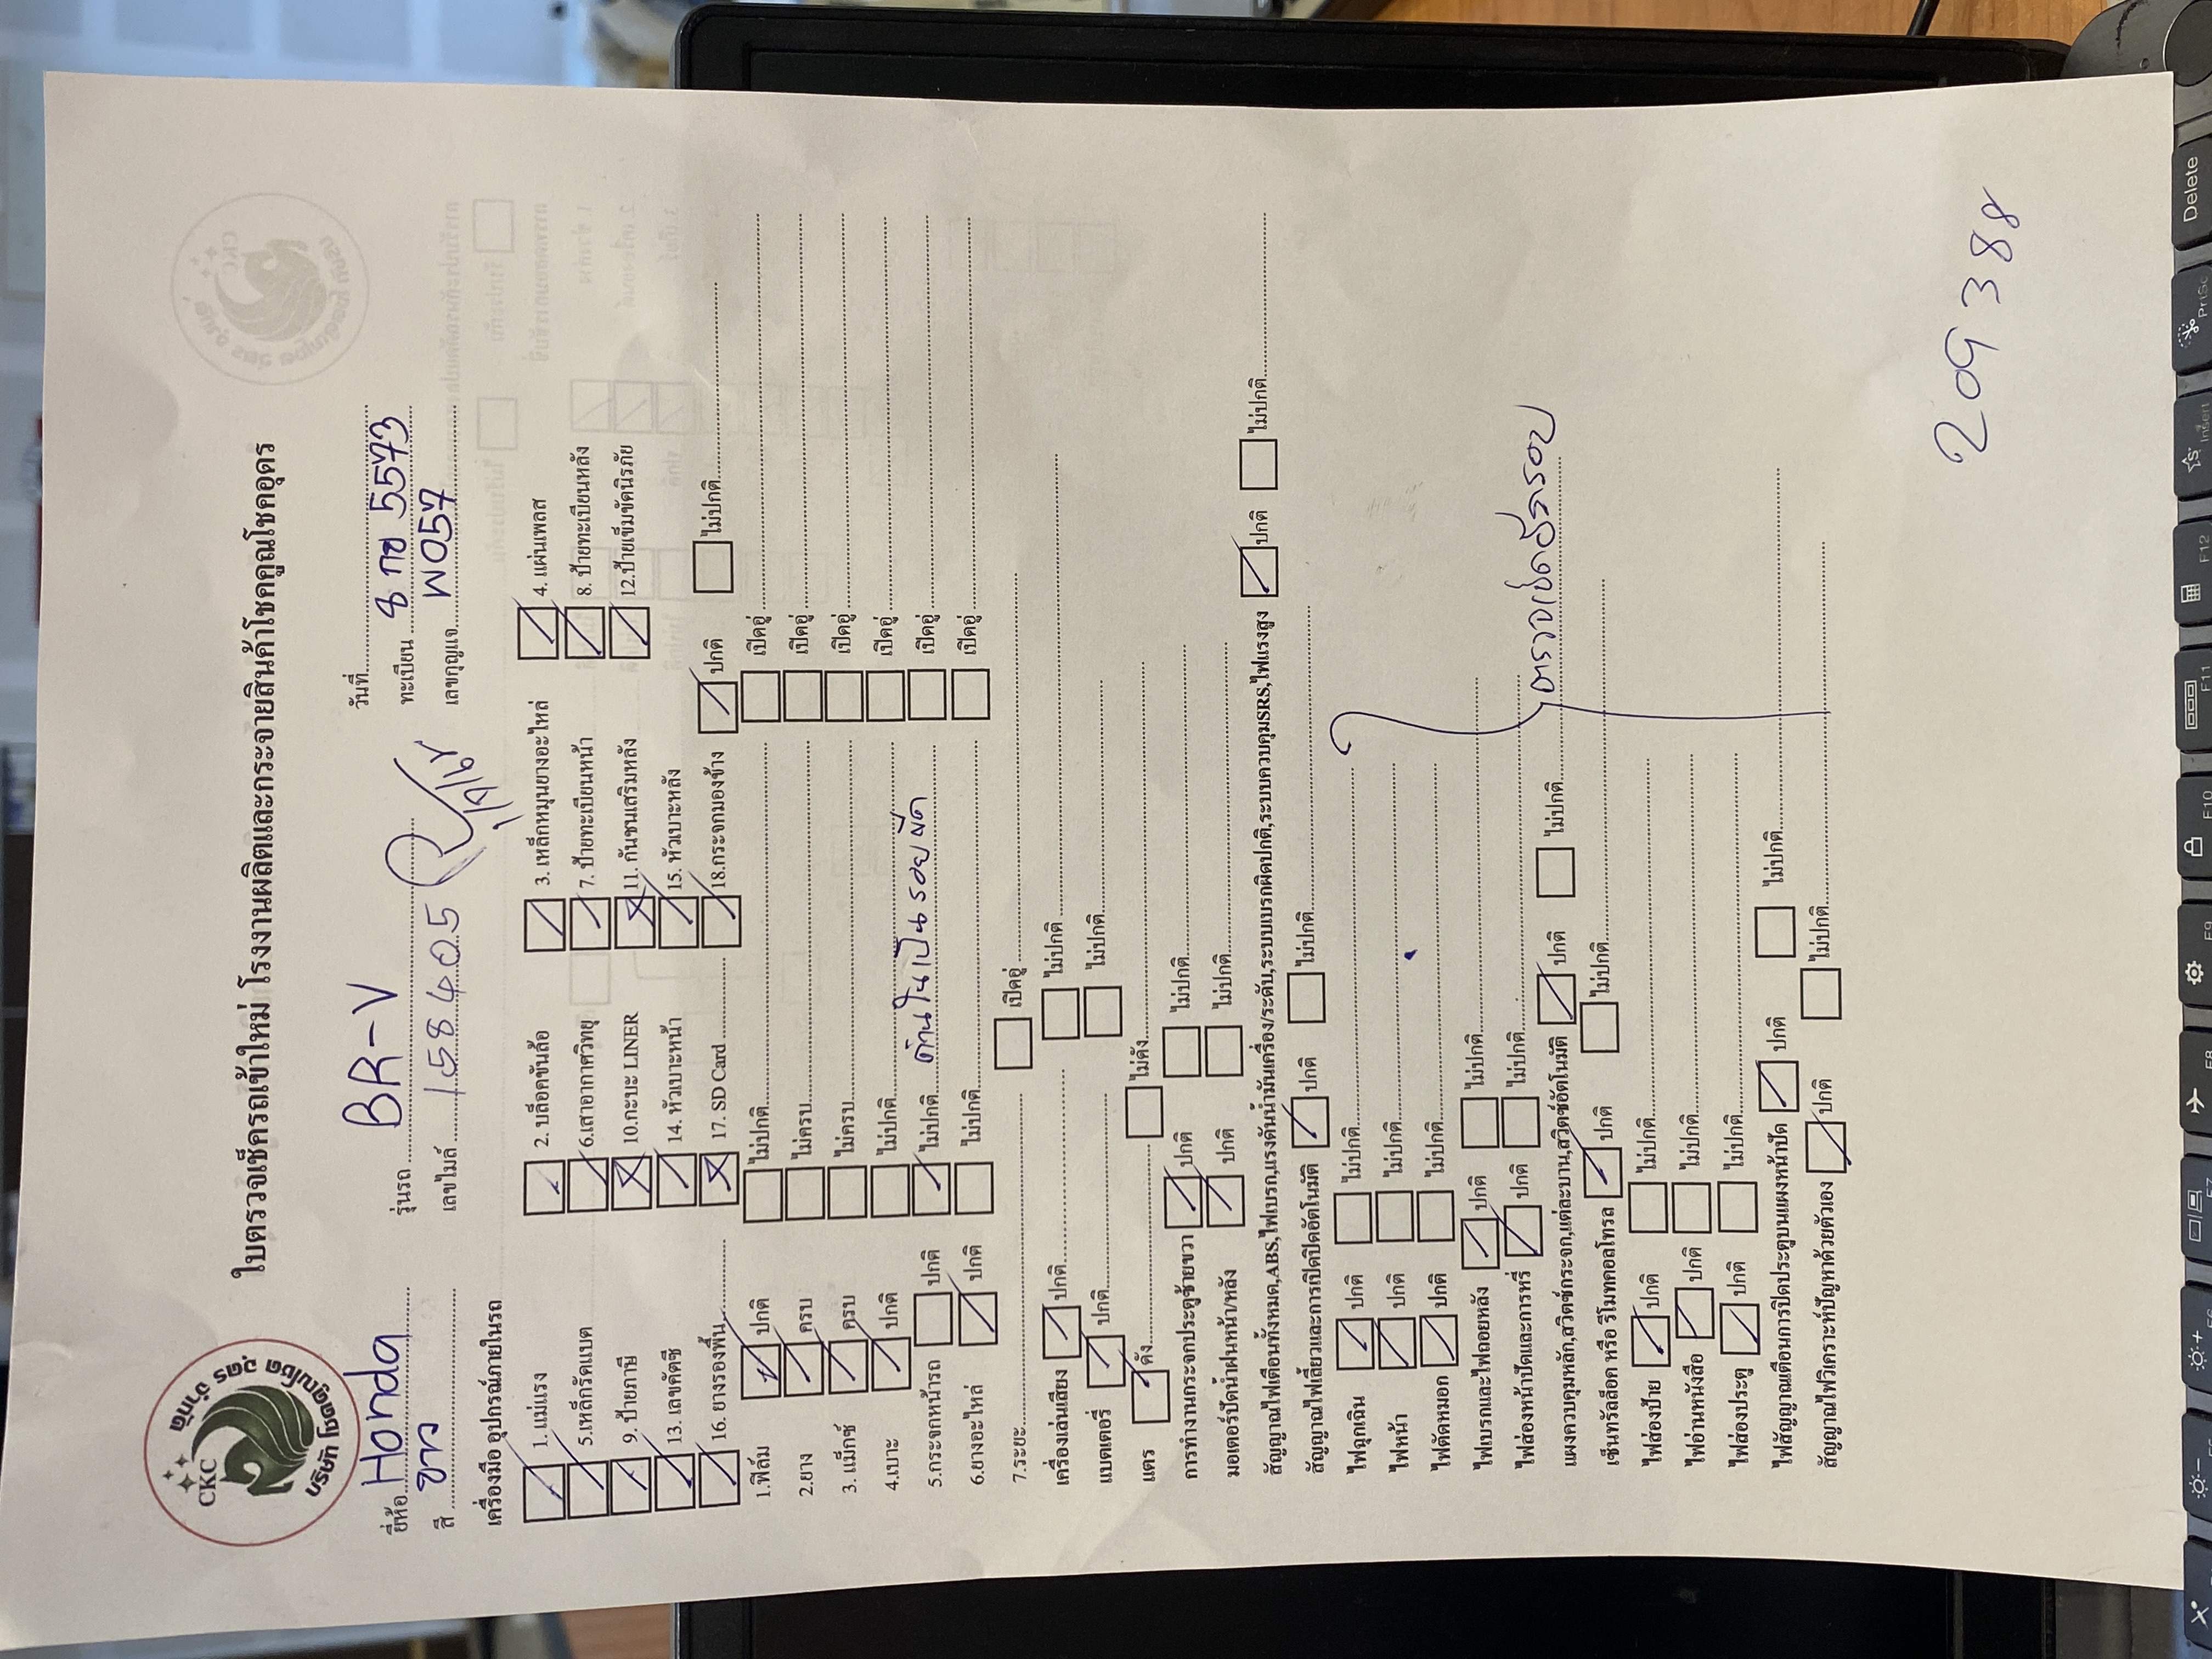 CKC
บริษัท โชคคูณโชค อุดร จำกัด
ใบตรวจเช็ครถเข้าใหม่ โรงงานผลิตและกระจายสินค้าโชคคูณโชคอุดร
วันที่
ยี่ห้อ Honda รุ่นรถ BR-V ทะเบียน 8 กข 5573
สี ขาว เลขไมล์ 158405 เลขกุญแจ W057
เครื่องมือ อุปกรณ์ภายในรถ
1. แม่แรง 2. บล็อคขันล้อ 3. เหล็กหมุนยางอะไหล่ 4. แผ่นเพลส
5.เหล็กรัดแบต 6.เสาอากาศวิทยุ 7. ป้ายทะเบียนหน้า 8. ป้ายทะเบียนหลัง
9. ป้ายภาษี 10.กะบะ LINER 11. กันชนเสริมหลัง 12.ป้ายเข็มขัดนิรภัย
13. เลขคัดซี 14. หัวเบาะหน้า 15. หัวเบาะหลัง
16. ยางรองพื้น 17. SD Card 18.กระจกมองข้าง ปกติ ไม่ปกติ
1.ฟิล์ม ปกติ ไม่ปกติ เปิดอู่
2.ยาง ครบ ไม่ครบ เปิดอู่
3. แม็กซ์ ครบ ไม่ครบ เปิดอู่
4.เบาะ ปกติ ไม่ปกติ เปิดอู่
5.กระจกหน้ารถ ปกติ ไม่ปกติ ด้านในเป็นรอยขีด เปิดอู่
6.ยางอะไหล่ ปกติ ไม่ปกติ เปิดอู่
7.ระยะ เปิดอู่
เครื่องเล่นเสียง ปกติ ไม่ปกติ
แบตเตอรี่ ปกติ ไม่ปกติ
แตร ดัง ไม่ดัง
การทำงานกระจกประตูซ้ายขวา ปกติ ไม่ปกติ
มอเตอร์ปัดน้ำฝนหน้า/หลัง ปกติ ไม่ปกติ
สัญญาณไฟเตือนทั้งหมด,ABS,ไฟเบรก,แรงดันน้ำมันเครื่อง/ระดับ,ระบบเบรกผิดปกติ,ระบบควบคุมSRS,ไฟแรงสูง ปกติ ไม่ปกติ
สัญญาณไฟเลี้ยวและการเปิดปิดอัตโนมัติ ปกติ ไม่ปกติ
ไฟฉุกเฉิน ปกติ ไม่ปกติ
ไฟหน้า ปกติ ไม่ปกติ
ไฟตัดหมอก ปกติ ไม่ปกติ
ไฟเบรกและไฟถอยหลัง ปกติ ไม่ปกติ
ไฟส่องหน้าปัดและการหรี่ ปกติ ไม่ปกติ
แผงควบคุมหลัก,สวิตซ์กระจก,แต่ละบาน,สวิตซ์อัตโนมัติ ปกติ ไม่ปกติ
เซ็นทรัลล็อค หรือ รีโมทคอลโทรล ปกติ ไม่ปกติ
ไฟส่องป้าย ปกติ ไม่ปกติ
ไฟอ่านหนังสือ ปกติ ไม่ปกติ
ไฟส่องประตู ปกติ ไม่ปกติ
ไฟสัญญาณเตือนการปิดประตูบนแผงหน้าปัด ปกติ ไม่ปกติ
สัญญาณไฟวิเคราะห์ปัญหาด้วยตัวเอง ปกติ ไม่ปกติ
209388
Delete
PrtSc
Insert
F12
F11
F10
F9
F8
F7